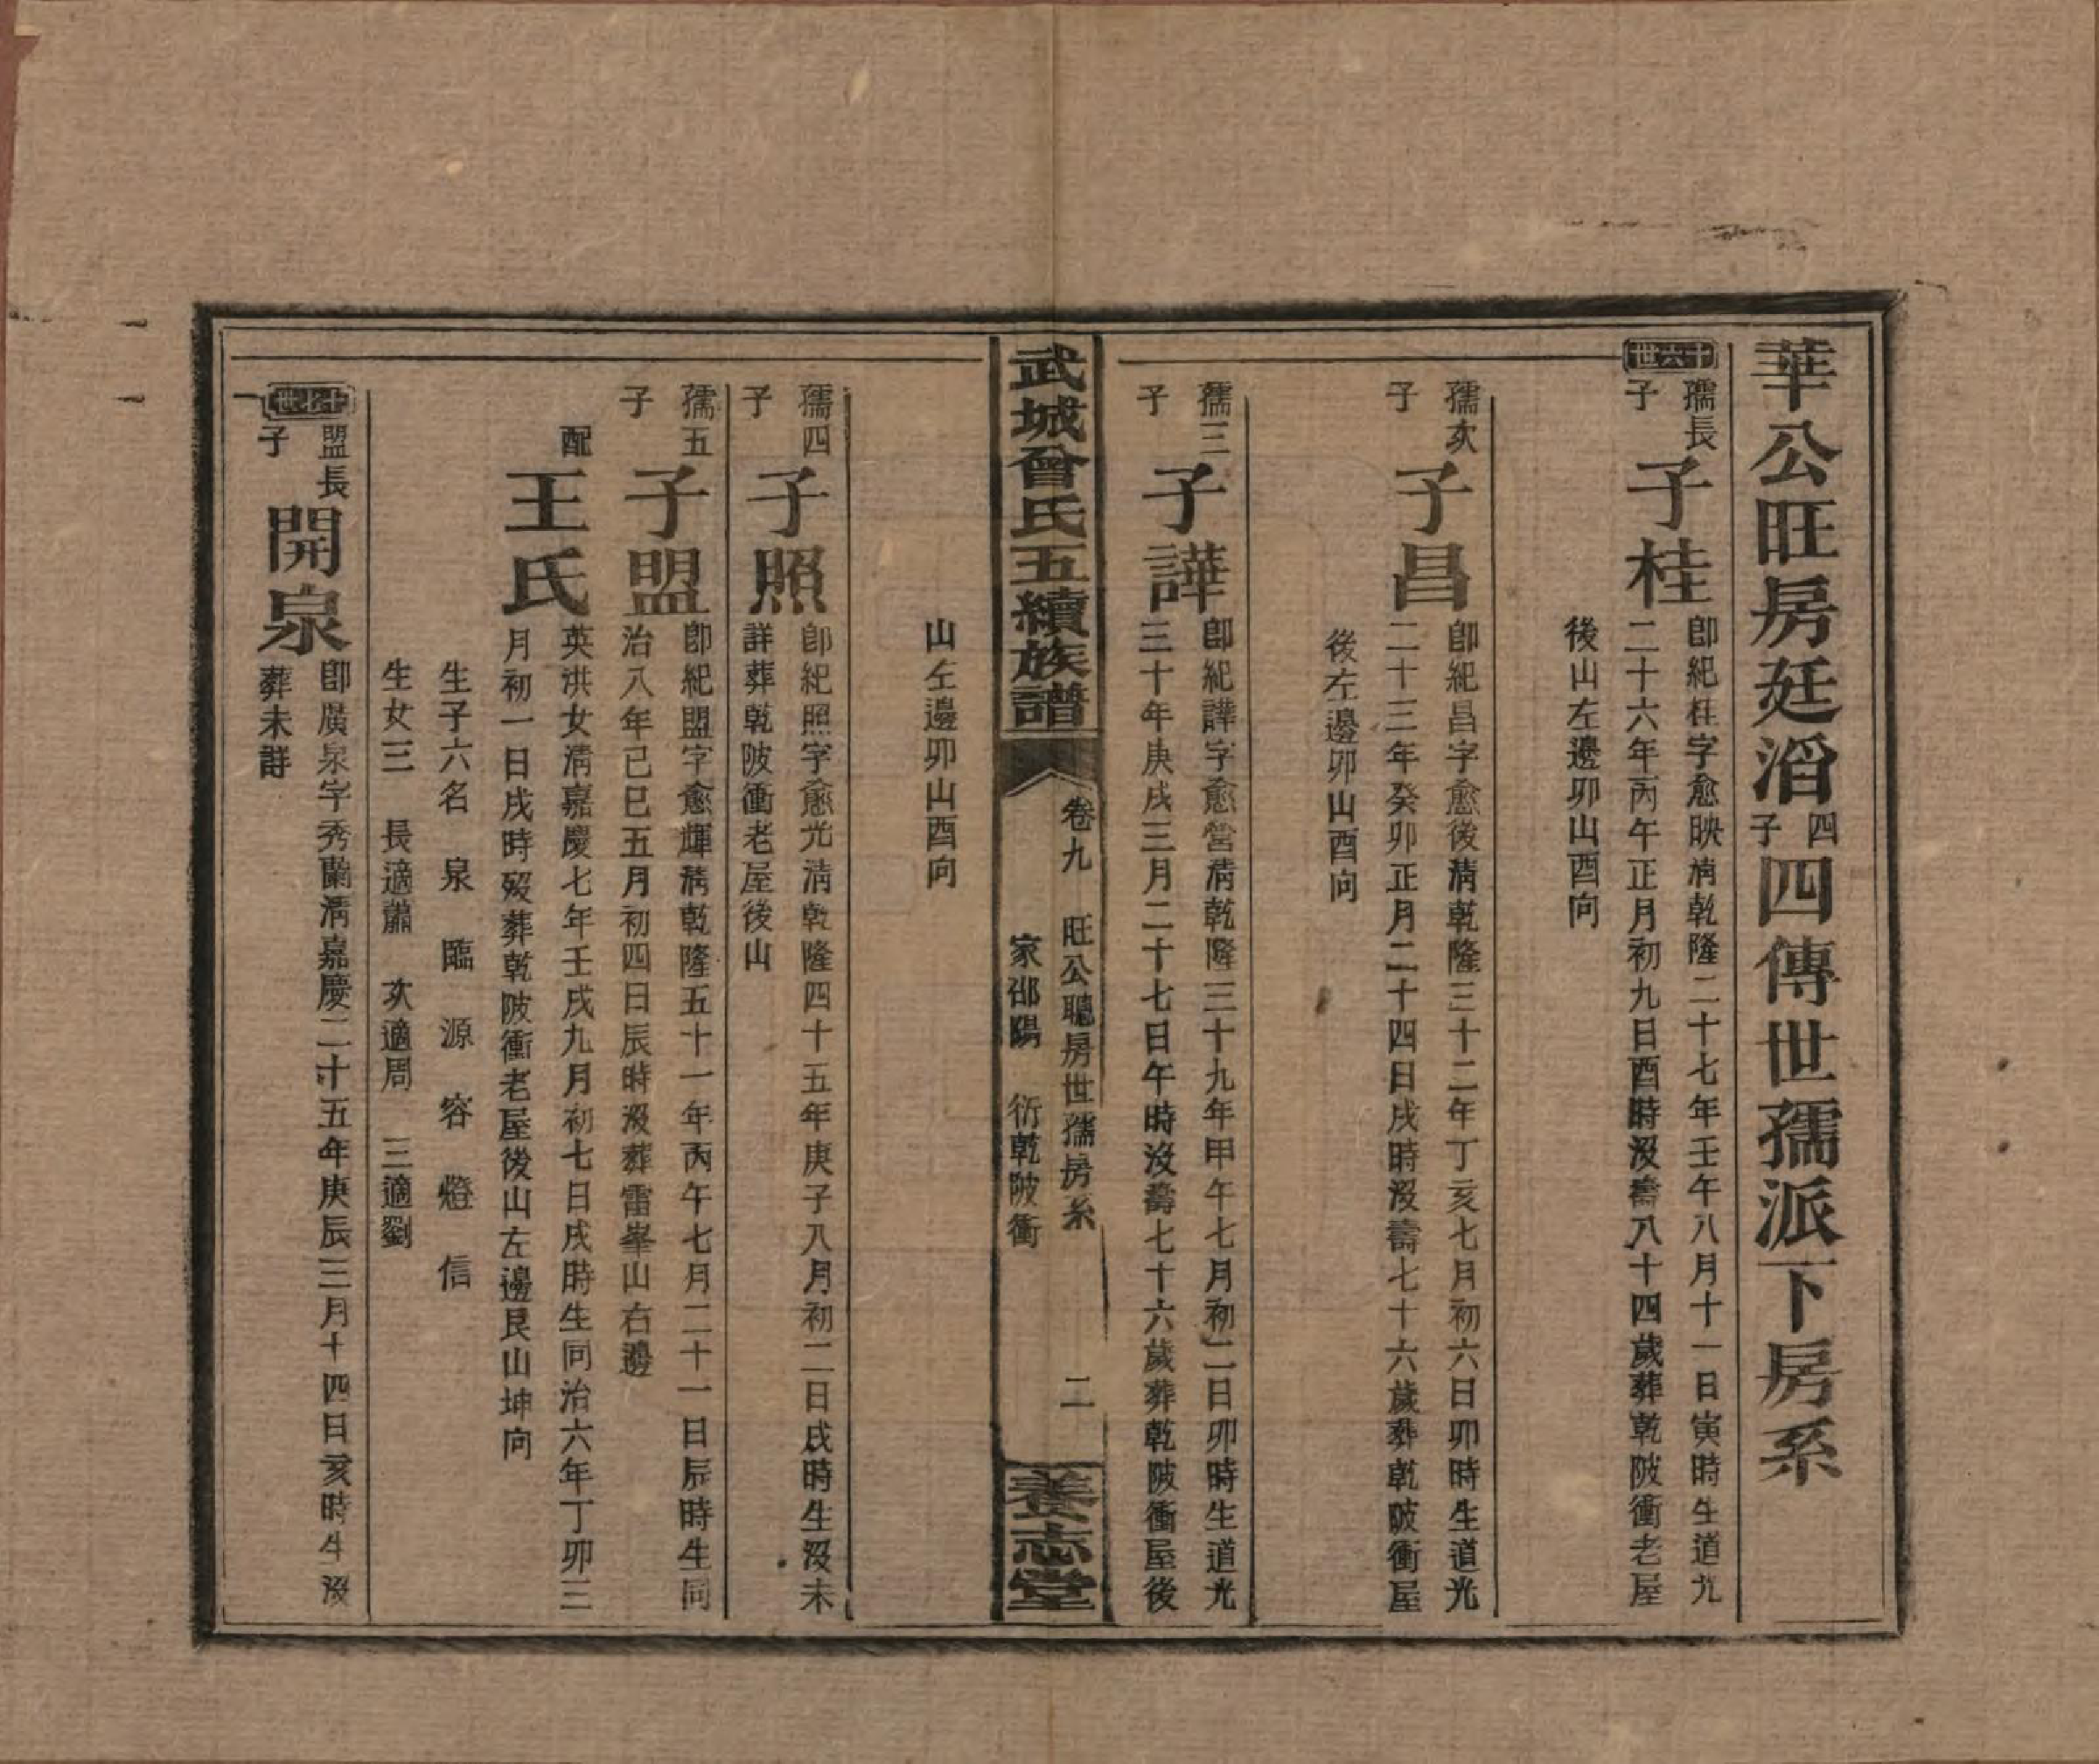 華公旺房廷滔四子四傳世孺派下房系
十六世
孺長子
子桂
卽紀桂字愈映清乾隆二十七年壬午八月十一日寅時生道光
二十六年丙午正月初九日酉時沒壽八十四歲葬乾陂衝老屋
後山左邊卯山酉向
孺次子
子昌
卽紀昌字愈後清乾隆三十二年丁亥七月初六日卯時生道光
二十三年癸卯正月二十四日戌時沒壽七十六歲葬乾陂衝屋
後左邊卯山酉向
孺三子
子譁
卽紀譁字愈營清乾隆三十九年甲午七月初二日卯時生道光
三十年庚戌三月二十七日午時沒壽七十六歲葬乾陂衝屋後
武城曾氏五續族譜
卷九 旺公聰房世孺房系 二
家邵陽 衍乾陂衝
養志堂
山左邊卯山酉向
孺四子
子照
卽紀照字愈光清乾隆四十五年庚子八月初二日戌時生沒未
詳葬乾陂衝老屋後山
孺五子
子盟
卽紀盟字愈輝清乾隆五十一年丙午七月二十一日辰時生同
治八年己巳五月初四日辰時沒葬雷峯山右邊
配
王氏
英洪女清嘉慶七年壬戌九月初七日戌時生同治六年丁卯三
月初一日戌時歿葬乾陂衝老屋後山左邊艮山坤向
生子六名 泉 臨 源 容 燈 信
生女三 長適蕭 次適周 三適劉
十七世
盟長子
開泉
卽廣泉字秀蘭清嘉慶二十五年庚辰三月十四日亥時生沒
葬未詳